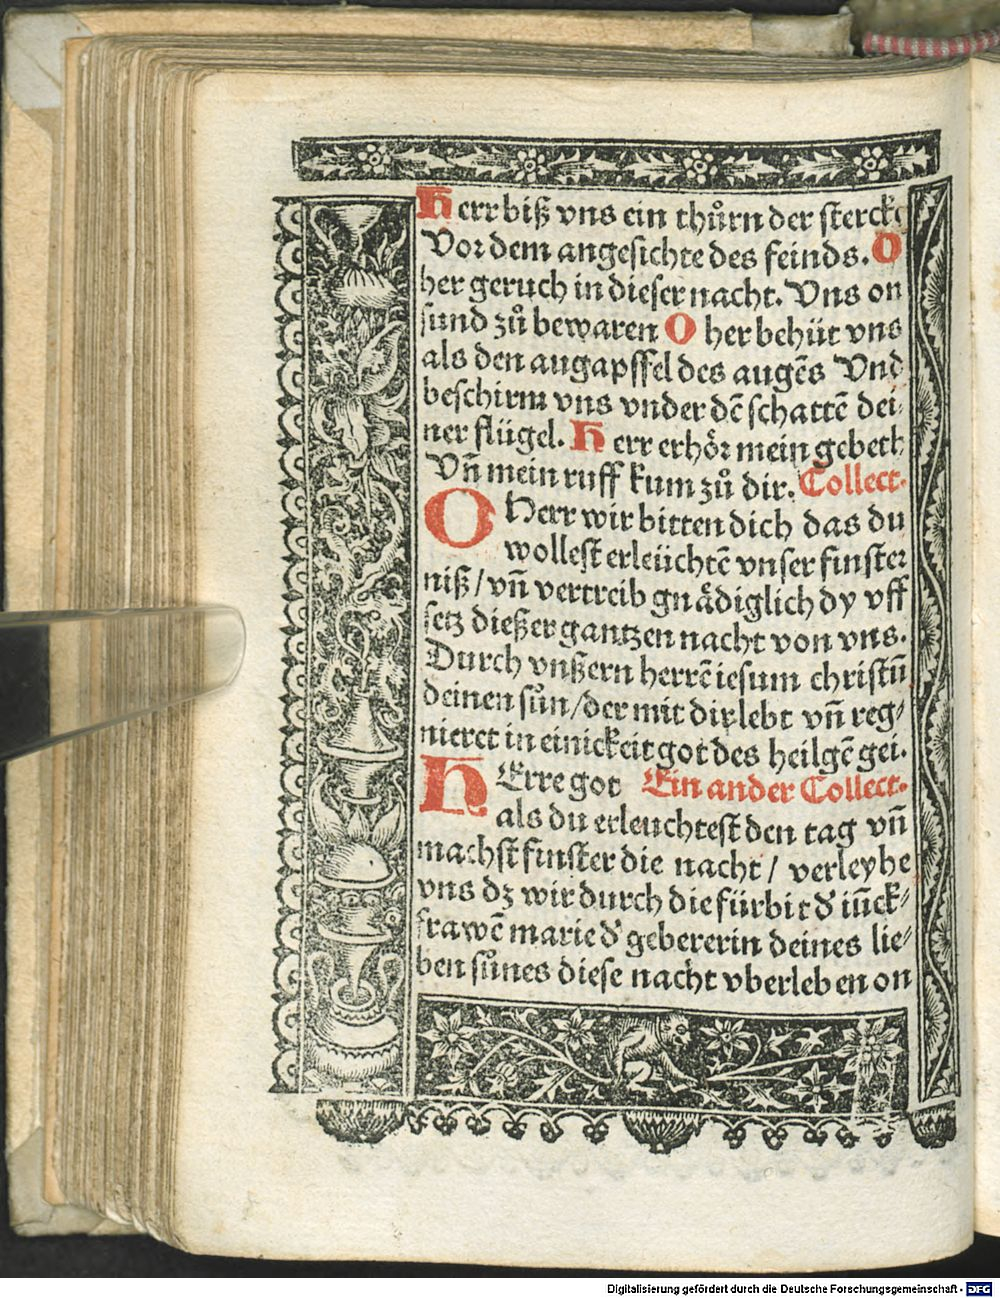 Herr biß vns ein thůrn der stercke
Vor dem angesichte des feinds. O
her geruch in dieser nacht. Vns on
sund zů bewaren O her behüt vns
als den augapffel des augẽs Vnd
beschirm vns vnder dẽ schattẽ dei⸗
ner flügel. Herr erhör mein gebeth
Vñ mein ruff kum zů dir. Collect.
O Herr wir bitten dich das du
wollest erleüchtẽ vnser finster
niß / vñ vertreib gnädiglich dy vff
setz dießer gantzen nacht von vns.
Durch vnßern herrẽ iesum christũ
deinen sůn / der mit dir lebt vñ reg⸗
nieret in einickeit got des heilgẽ gei.
HErre got Ein ander Collect.
als du erleuchtest den tag vñ
machst finster die nacht / verleyhe
vns dz wir durch die fürbit d' iũck⸗
frawẽ marie d' gebererin deines lie⸗
ben sůnes diese nacht vberleben on
Digitalisierung gefördert durch die Deutsche Forschungsgemeinschaft - DFG